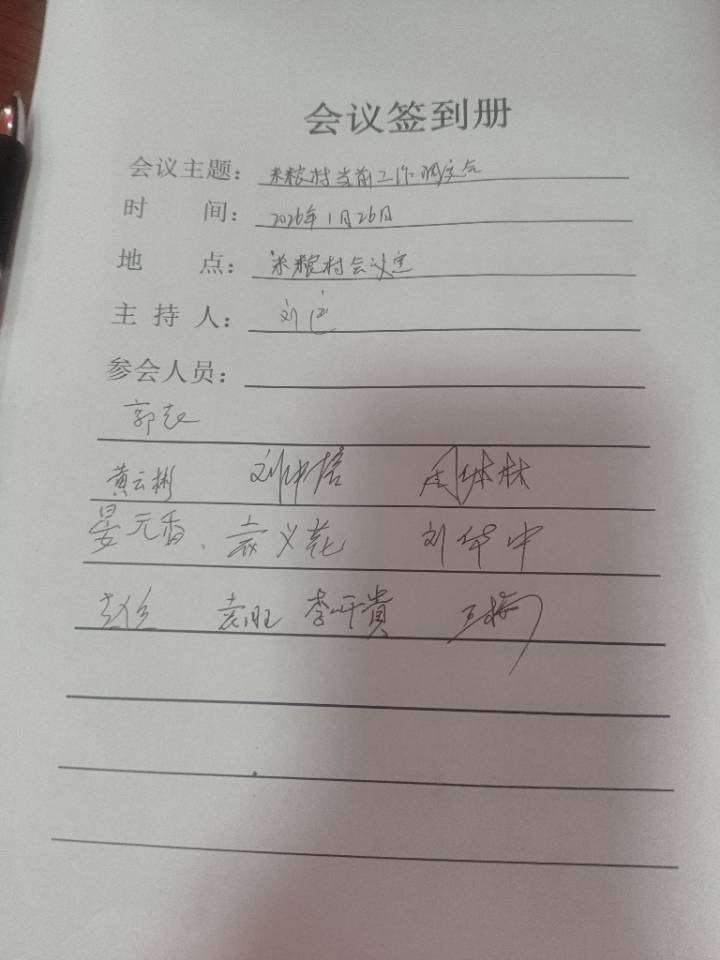 会议签到册
会议主题：米粮村当前工作调度会
时 间：2026年1月26日
地 点：米粮村会议室
主 持 人：刘
参会人员：
郭
黄云彬
晏元香 袁义花 刘华中
袁旺 李 贵 王梅